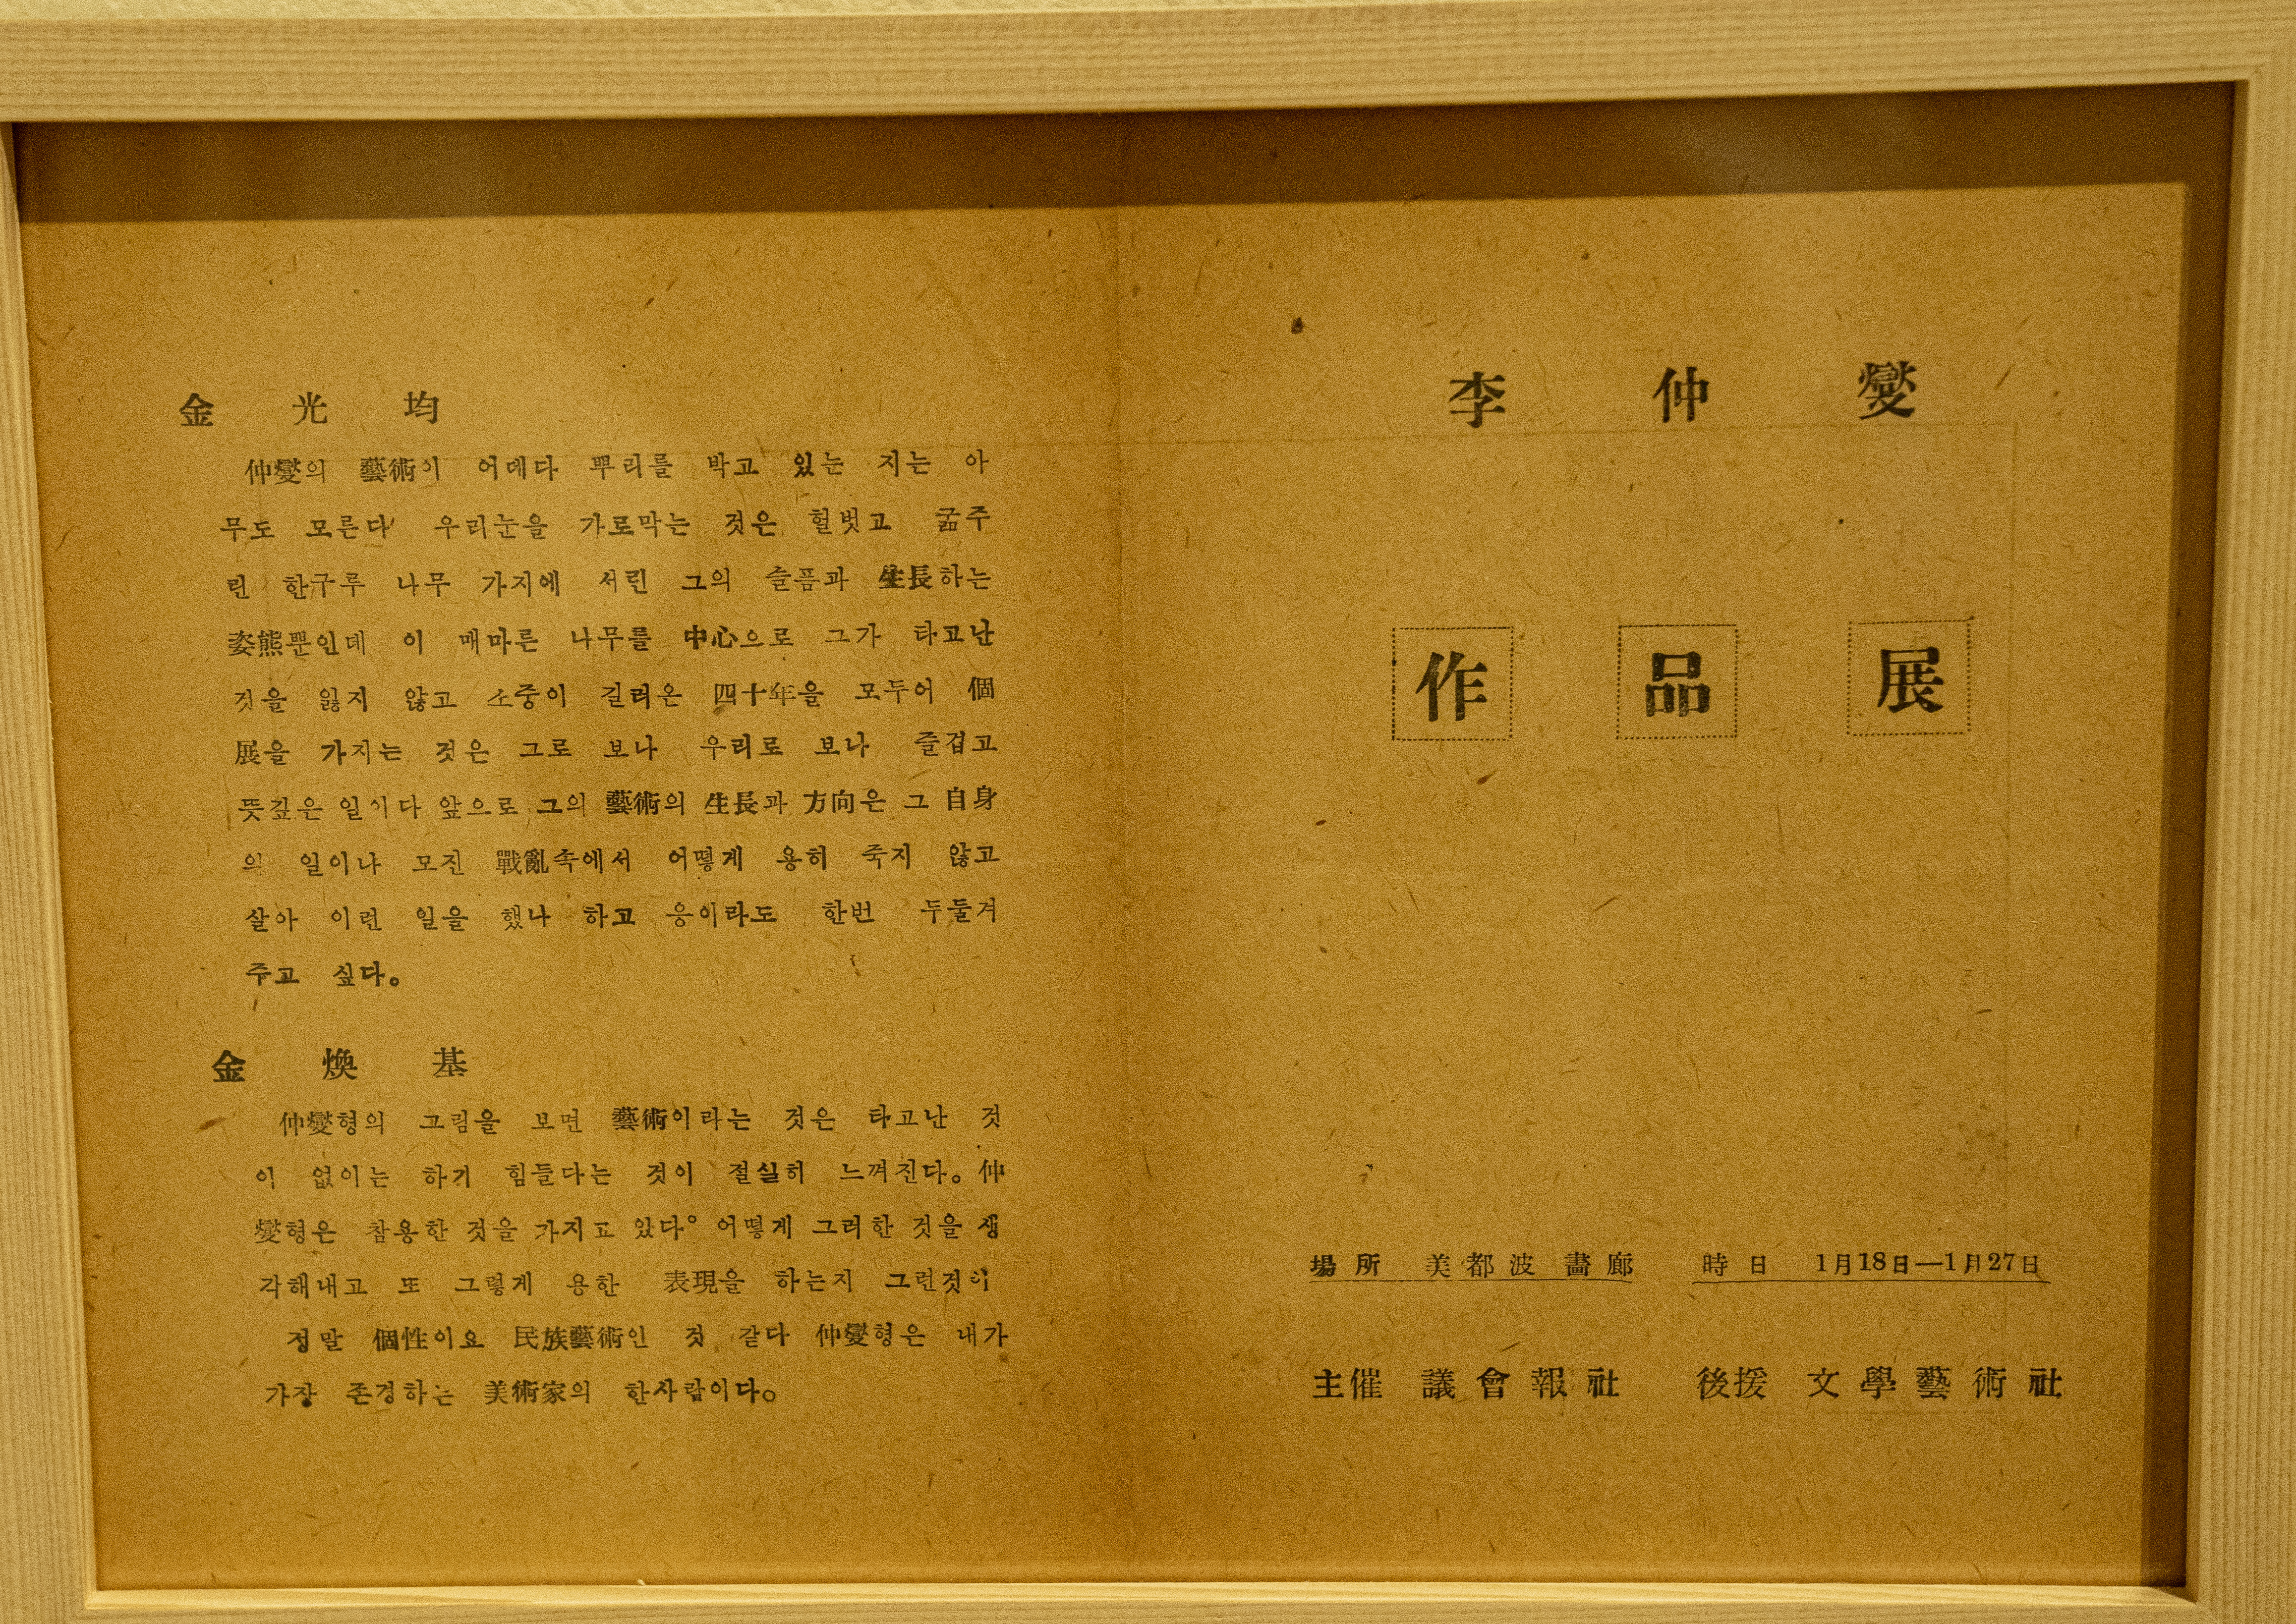 金光均
仲燮의 藝術이 어데다 뿌리를 박고 있는 지는 아
무도 모른다' 우리눈을 가로막는 것은 헐벗고 굶주
린 한구루 나무 가지에 서린 그의 슬픔과 生長하는
姿態뿐인데 이 매마른 나무를 中心으로 그가 타고난
것을 잃지 않고 소중이 길러온 四十年을 모두어 個
展을 가지는 것은 그로 보나 우리로 보나 즐겁고
뜻깊은 일이다 앞으로 그의 藝術의 生長과 方向은 그 自身
의 일이나 모진 戰亂속에서 어떻게 용히 죽지 않고
살아 이런 일을 했나 하고 응이라도 한번 두둘겨
주고 싶다。
金煥基
仲燮형의 그림을 보면 藝術이라는 것은 타고난 것
이 없이는 하기 힘들다는 것이 절실히 느껴진다。仲
燮형은 참용한 것을 가지고 있다。어떻게 그러한 것을 생
각해내고 또 그렇게 용한 表現을 하는지 그런것이
정말 個性이요 民族藝術인 것 같다 仲燮형은 내가
가장 존경하는 美術家의 한사람이다。
李仲燮
作品展
場所 美都波畵廊 時日 1月18日—1月27日
主催 議會報社 後援 文學藝術社